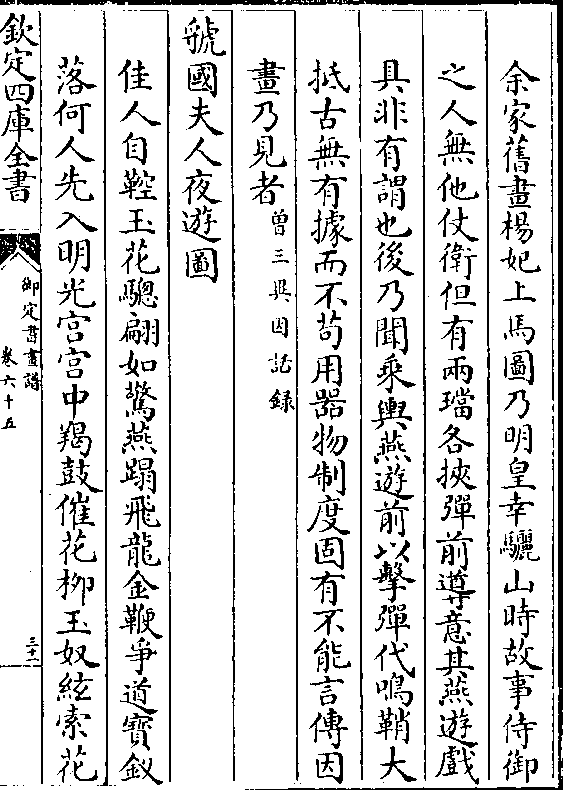 余家舊畫楊妃上馬圖乃明皇幸驪山時故事侍御
之人無他仗衛但有兩璫各挾彈前導意其燕遊戲
具非有謂也後乃聞乘輿燕遊前以擊彈代鳴鞘大
抵古無有據而不苟用器物制度固有不能言傳因
畫乃見者曽三異因話録
虢國夫人夜遊圖
佳人自鞚玉花驄翩如驚燕蹋飛龍金鞭爭道寳釵
落何人先入明光宫宫中羯鼓催花柳玉奴絃索花
欽定四庫全書
御定書畫譜
卷六十五
三十二